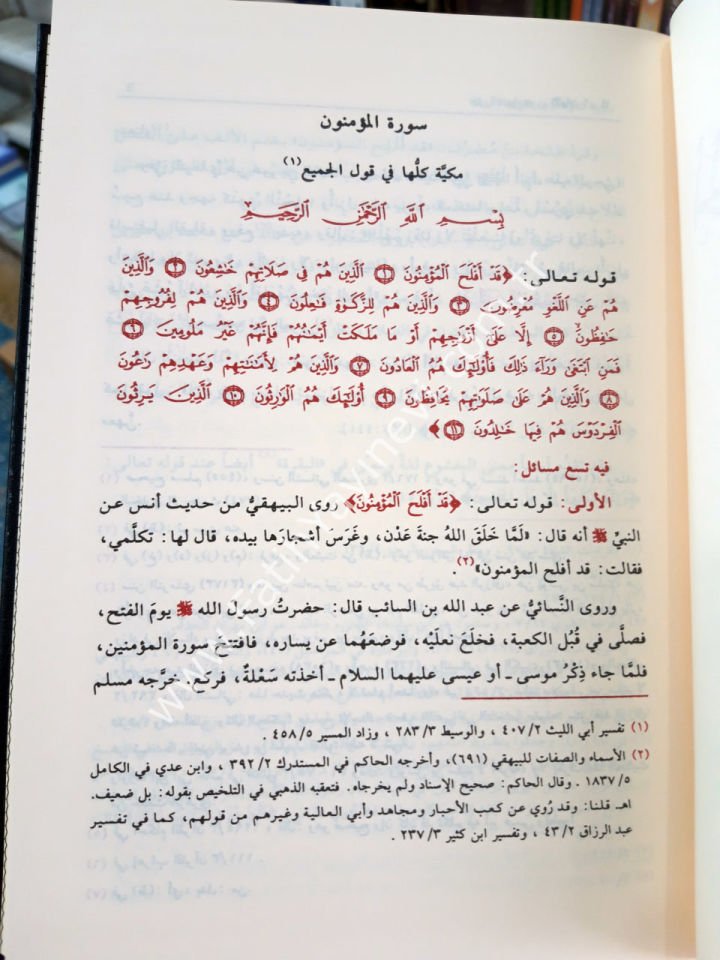 سورة المؤمنون
مكيَّة كلُّها في قول الجميع(١)
بِسْمِ ٱللَّهِ ٱلرَّحْمَٰنِ ٱلرَّحِيمِ
قوله تعالى: ﴿قَدْ أَفْلَحَ ٱلْمُؤْمِنُونَ ۝١ ٱلَّذِينَ هُمْ فِي صَلَاتِهِمْ خَٰشِعُونَ ۝٢ وَٱلَّذِينَ
هُمْ عَنِ ٱللَّغْوِ مُعْرِضُونَ ۝٣ وَٱلَّذِينَ هُمْ لِلزَّكَوٰةِ فَٰعِلُونَ ۝٤ وَٱلَّذِينَ هُمْ لِفُرُوجِهِمْ
حَٰفِظُونَ ۝٥ إِلَّا عَلَىٰٓ أَزْوَٰجِهِمْ أَوْ مَا مَلَكَتْ أَيْمَٰنُهُمْ فَإِنَّهُمْ غَيْرُ مَلُومِينَ ۝٦
فَمَنِ ٱبْتَغَىٰ وَرَآءَ ذَٰلِكَ فَأُو۟لَٰٓئِكَ هُمُ ٱلْعَادُونَ ۝٧ وَٱلَّذِينَ هُمْ لِأَمَٰنَٰتِهِمْ وَعَهْدِهِمْ رَٰعُونَ
۝٨ وَٱلَّذِينَ هُمْ عَلَىٰ صَلَوَٰتِهِمْ يُحَافِظُونَ ۝٩ أُو۟لَٰٓئِكَ هُمُ ٱلْوَٰرِثُونَ ۝١٠ ٱلَّذِينَ يَرِثُونَ
ٱلْفِرْدَوْسَ هُمْ فِيهَا خَٰلِدُونَ ۝١١﴾
فيه تسع مسائل:
الأولى: قوله تعالى: ﴿قَدْ أَفْلَحَ ٱلْمُؤْمِنُونَ﴾ روى البيهقيُّ من حديث أنس عن
النبيِّ ﷺ أنه قال: «لَمَّا خَلَقَ اللهُ جنةَ عَدْن، وغَرَسَ أشجارَها بيده، قال لها: تكلَّمي،
فقالت: قد أفلح المؤمنون»(٢).
وروى النَّسائيُّ عن عبد الله بن السائب قال: حضرتُ رسول الله ﷺ يومَ الفتح،
فصلَّى في قُبُل الكعبة، فخلَعَ نعلَيْه، فوضعَهُما عن يساره، فافتتحَ سورة المؤمنين،
فلمَّا جاء ذِكْرُ موسى ـ أو عيسى عليهما السلام ـ أخذته سَعْلةٌ، فركع. خرَّجه مسلم
(١) تفسير أبي الليث ٢/ ٤٠٧، والوسيط ٣/ ٢٨٣ ، وزاد المسير ٥/ ٤٥٨ .
(٢) الأسماء والصفات للبيهقي (٦٩١)، وأخرجه الحاكم في المستدرك ٢/ ٣٩٢ ، وابن عدي في الكامل
٥/ ١٨٣٧ . وقال الحاكم: صحيح الإسناد ولم يخرجاه. فتعقبه الذهبي في التلخيص بقوله: بل ضعيف.
اهـ قلنا: وقد رُوي عن كعب الأحبار ومجاهد وأبي العالية وغيرهم من قولهم، كما في تفسير
عبد الرزاق ٢/ ٤٣ ، وتفسير ابن كثير ٣/ ٢٣٧ .